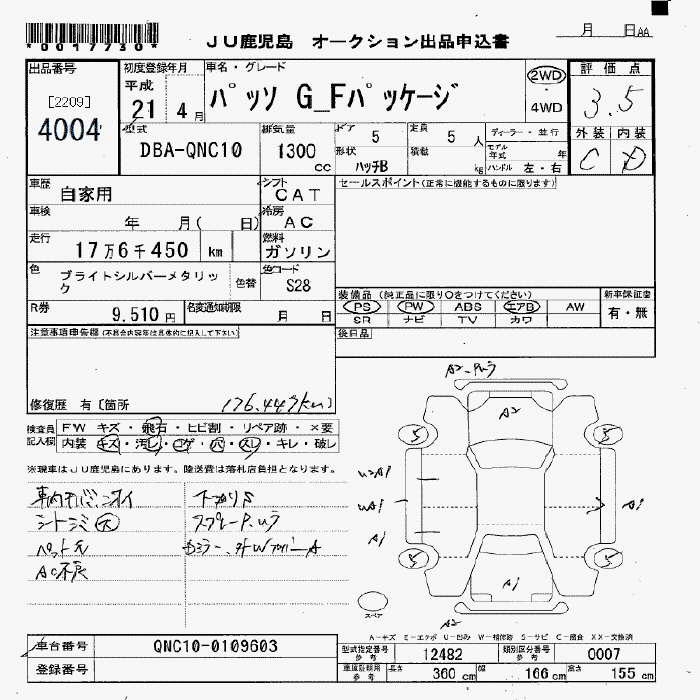 *0017730*
JU鹿児島 オークション出品申込書
月 日AA
出品番号
[2209]
4004
初度登録年月
平成
21 4月
車名・グレード
パッソ G_Fパッケージ
2WD
・
4WD
評価点
3.5
外装 内装
C D
型式
DBA-QNC10
排気量
1300
cc
ドア 5
形状
ハッチB
定員 5 人
積載 kg
ディーラー・並行
モデル年式 年
ハンドル 左・右
車歴
自家用
シフト
CAT
車検
年 月( 日)
冷房
AC
走行
17万6千450 km
燃料
ガソリン
色
ブライトシルバーメタリック
色替
色コード
S28
R券
9,510 円
名変通知期限
月 日
セールスポイント(正常に機能するものに限ります)
装備品(純正品に限り○をつけてください)
PS PW ABS エアB AW
SR ナビ TV カワ
新車保証書
有・無
後日品
注意事項申告欄(不具合内容等は具体的に記入して下さい)
修復歴 有〔箇所
(176,449km)
検査員記入欄
FW キズ・飛石・ヒビ割・リペア跡・×要
内装 キズ・汚レ・コゲ・穴・スレ・キレ・破レ
※現車はJU鹿児島にあります。陸送費は落札店負担となります。
シートシミ 大
ペット毛
AC不良
下廻りS
A2
5
5
A1
A1
5
5
A1
A2
スペア
A-キズ E-エクボ U-凹み W-補修跡 S-サビ C-腐食 XX-交換済
車台番号
QNC10-0109603
登録番号
型式指定番号
参考
12482
類別区分番号
参考
0007
車検証諸元
参考
長さ 360 cm
幅 166 cm
高さ 155 cm